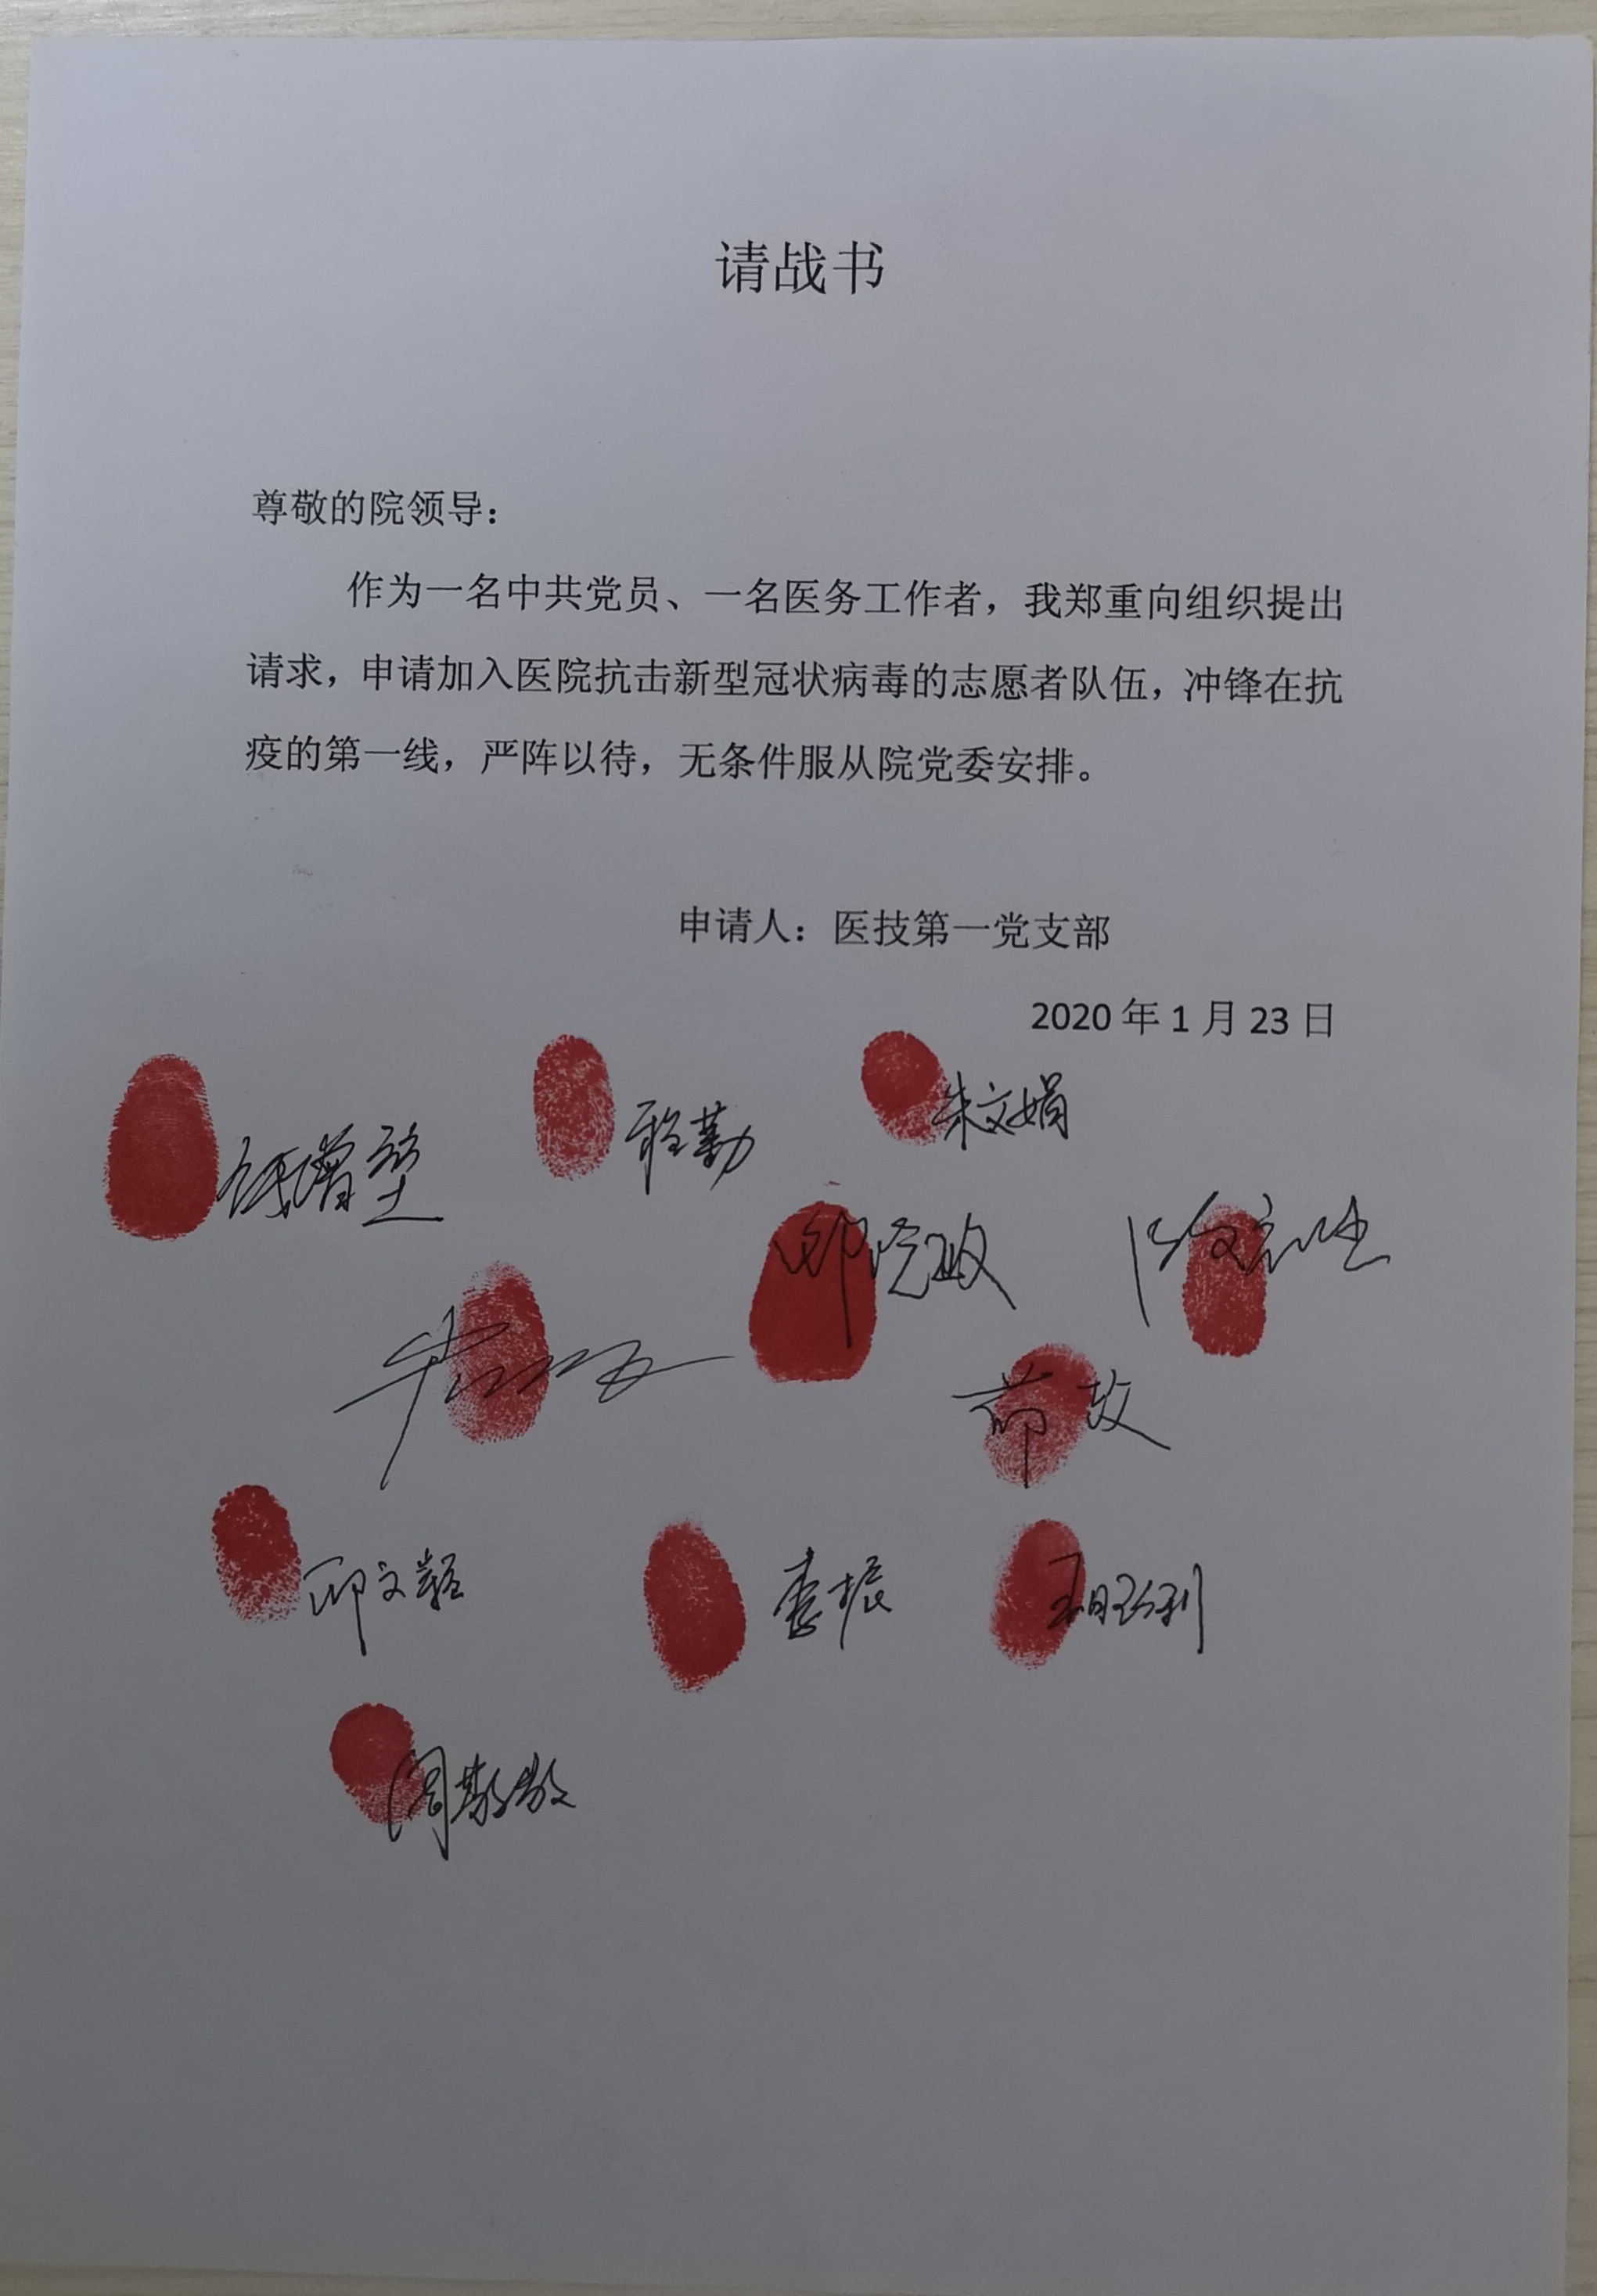 请战书
尊敬的院领导：
作为一名中共党员、一名医务工作者，我郑重向组织提出
请求，申请加入医院抗击新型冠状病毒的志愿者队伍，冲锋在抗
疫的第一线，严阵以待，无条件服从院党委安排。
申请人：医技第一党支部
2020 年 1 月 23 日
程勤
朱文娟
李振